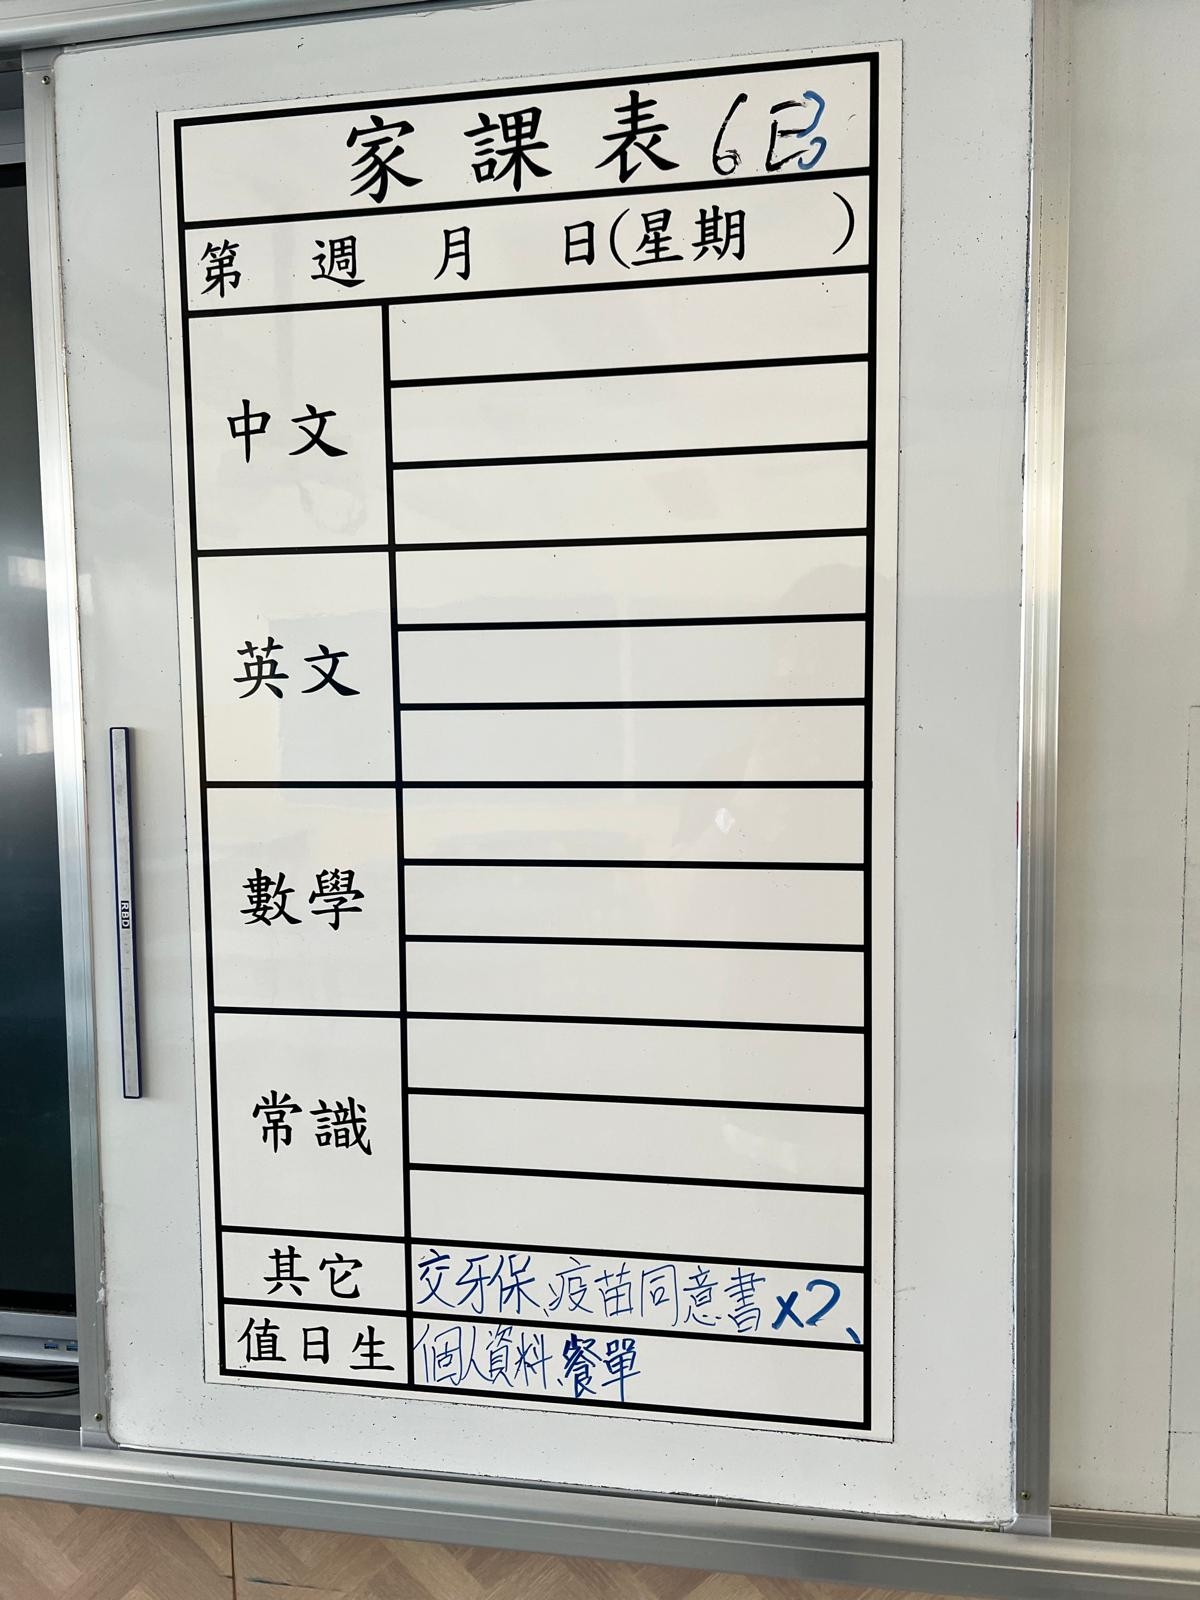 家課表 6E
第 週 月 日(星期 )
中文
英文
數學
常識
其它 交牙保、疫苗同意書x2、
值日生 個人資料、餐單
RBD